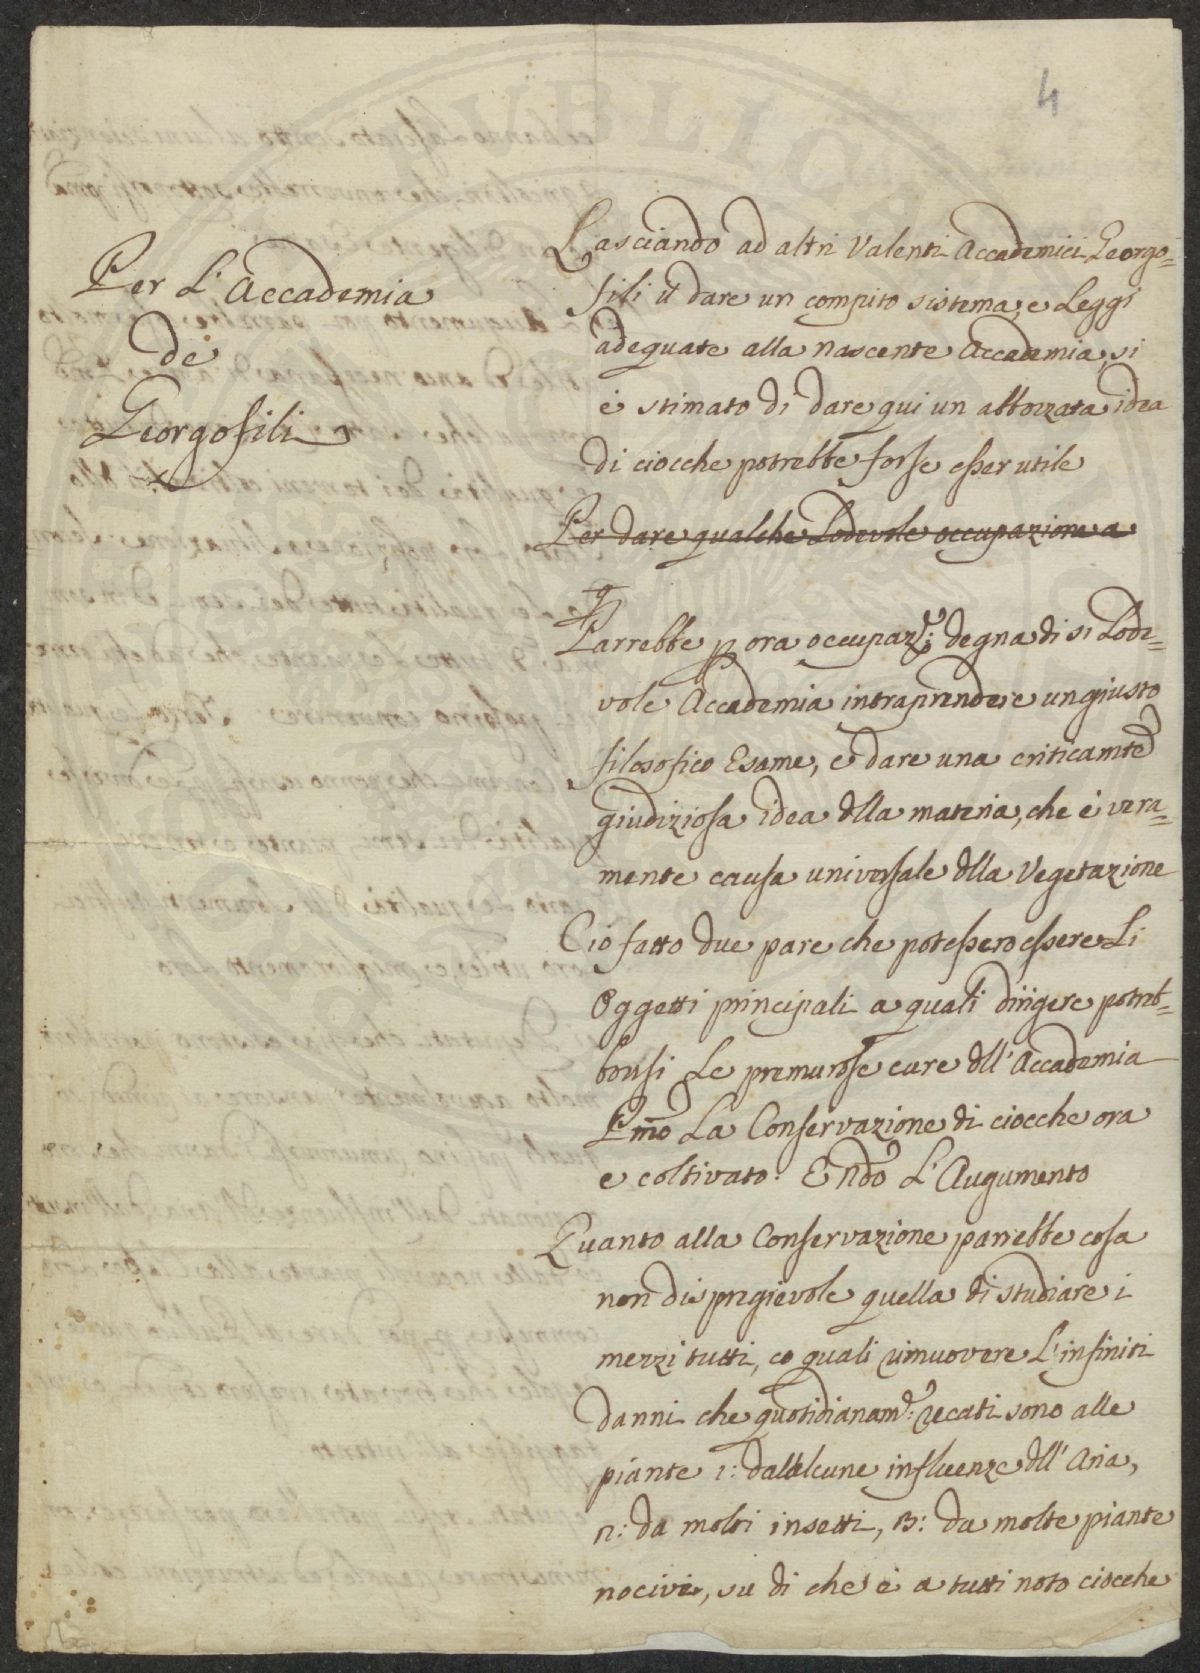 4
Per L'Accademia
de
Georgofili
Lasciando ad altri Valenti Accademici Georgo=
fili il dare un compito sistema, e Leggi
adequate alla nascente Accademia, si
è stimato di dare qui un abbozzata idea
di ciocche potrebbe forse esser utile
Per dare qualche Lodevole occupazione a
Parrebbe p ora occupaz.e degna di si Lode=
vole Accademia intraprendere un giusto
filosofico Esame, e dare una criticamte
giudiziosa idea dlla materia, che è vera=
mente causa universale dlla Vegetazione
Ciò fatto due pare che potessero essere Li
Oggetti principali a quali dirigere potreb=
bonsi Le premurose cure dll'Accademia
Pmo La Conservazione di ciocche ora
e coltivato. E ndo L'Augumento
Quanto alla Conservazione parrebbe cosa
non dispregievole quella di studiare i
mezzi tutti, co quali rimuovere L'infiniti
danni che quotidianam.e recati sono alle
piante 1: dall alcune influenze dll'Aria,
2: da molti insetti, 3: da molte piante
nocive, su di che è a tutti noto ciocche